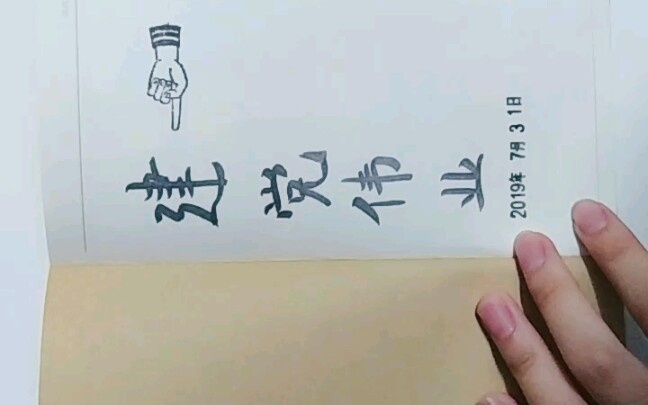 建党伟业
2019年 7月 31日